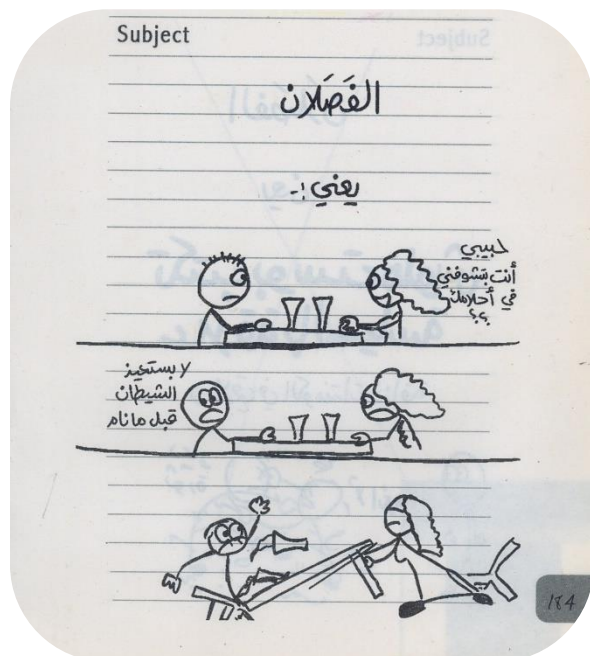 Subject
الفَصَلان
يعني :-
حبيبي
أنت بتشوفني
في أحلامك
؟؟
لا بستعيذ
الشيطان
قبل ما نام
184